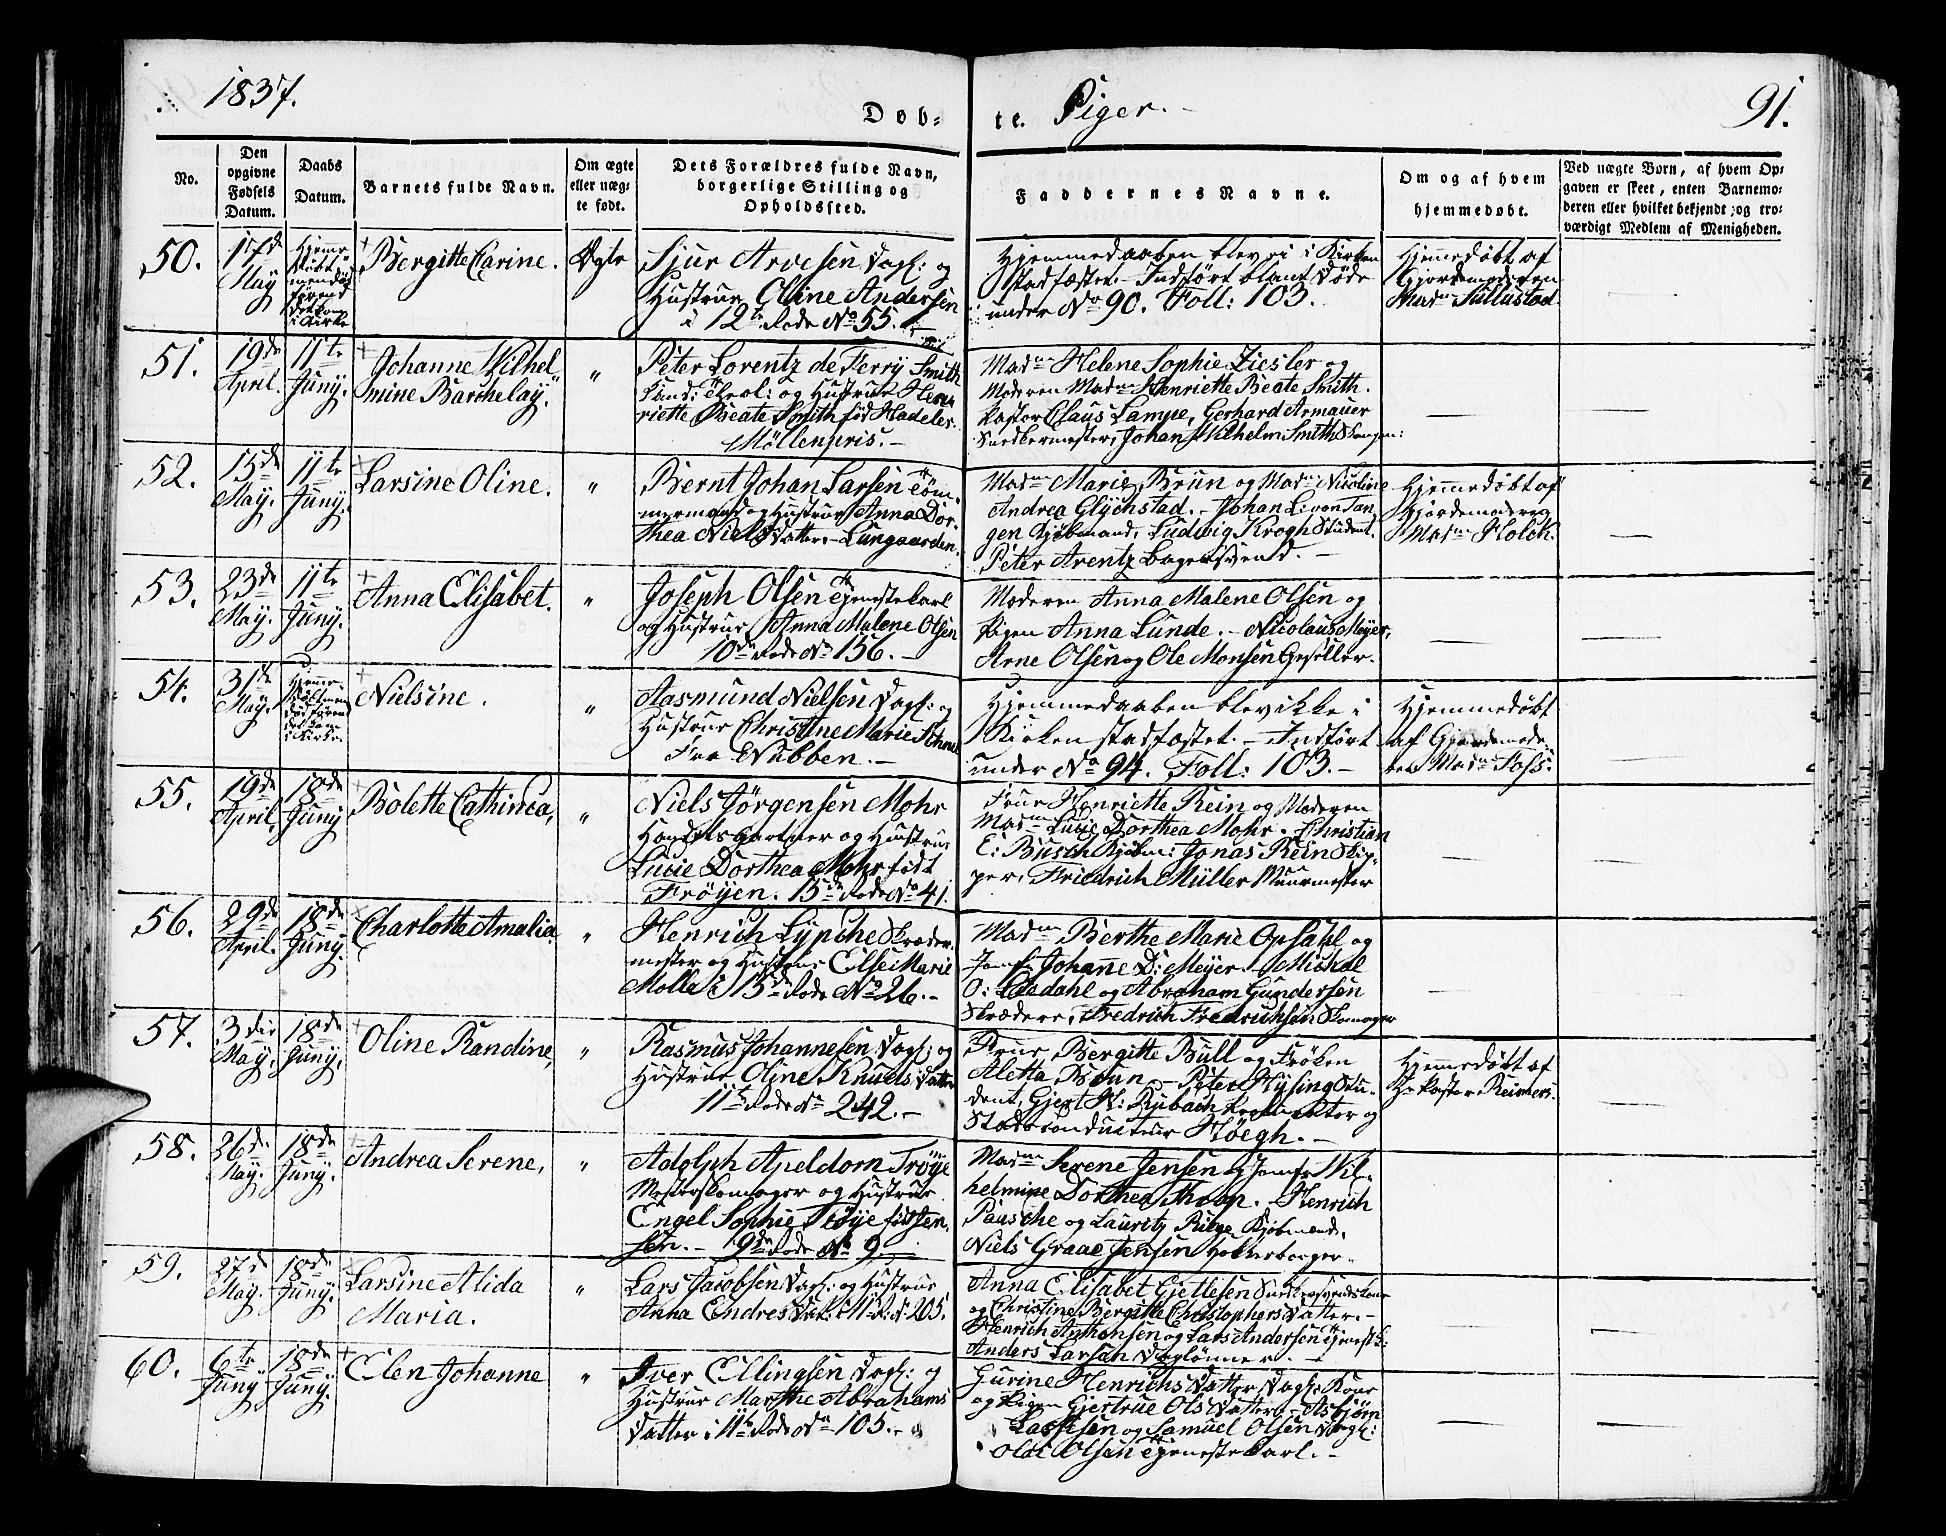 1837.
Døb-
te. Piger.-
91.
No.
Den
opgivne
Fødsels
Datum.
Daabs
Datum.
Barnets fulde Navn.
Om ægte
eller uæg-
te født.
Dets Forældres fulde Navn,
borgerlige Stilling og
Opholdssted.
Faddernes Navne.
Om og af hvem
hjemmedøbt.
Ved uægte Børn, af hvem Op-
gaven er skeet, enten Barnemo-
deren eller hvilket bekjendt, og tro-
værdigt Medlem af Menigheden.
50.
17de
May
Hjemme
døbt
men døde
førend
det kom
i Kirke
Bergitte Carine.
Ægte
Sjur Arvesen Dagk: og
Hustrue Oline Andersen
i 12te Rode No 55.
Hjemmedaaben blev ei i Kirken
stadfæstet.- Indført blant Døde
under No 90. Foll: 103.-
Hjemmedøbt af
Gjordemoderen
Madme Tullustad
51.
19de
April.
11te
Juny.
Johanne Wilhel
mine Barchelay.
"
Peter Lorentz de Ferry Smith
Cand: Theol: og Hustrue Hen
riette Beate Smith fød Hadeler.
Møllenpris.-
Madme Helene Sophie Ziesler og
Moderen Madme Henriette Beate Smith.
Pastor Claus Lampe, Gerhard Armauer
Snedkermester, Johan Wilhelm Smith
52.
15de
May.
11te
Juny.
Larsine Oline.
"
Bernt Johan Larsen Tøm-
mermand og Hustrue Anna Dor-
thea Niels Datter.- Lungaarden.
Madme Marie Brun og Madme Nicoline
Andrea Glychstad.- Johan L: von Tan-
gen Kjøbmand, Ludwig Krogh Student.
Peter Arentz Bagersvend.-
Hjemmedøbt af
Gjordemoderen
Madme Holck.
53.
23de
May.
11te
Juny.
Anna Elisabet.
"
Joseph Olsen Tjenestekarl
og Hustrue Anna Malene Olsen
10de Rode No 156.-
Moderen Anna Malene Olsen og
Pigen Anna Lunde.- Nicolaus Meyer,
Arne Olsen og Ole Monsen Geseller.
54.
31te
May.
Hjemme
døbt men
død førend
det kom
i Kirke.
Nielsine.
"
Aasmund Nielsen Dagk: og
Hustrue Christine Marie
Fra Nubben.-
Hjemmedaaben blev ikke i
Kirken stadfæstet.- Indført
under No 94. Foll: 103.-
Hjemmedøbt
af Gjordemode-
ren Madme Foss.
55.
19de
April.
18de
Juny
Bolette Cathinca,
"
Niels Jørgensen Mohr
Handelsgartner og Hustrue
Lucie Dorthea Mohr født
Frøyen. 15de Rode No 41.
Frue Henriette Rein og Moderen
Madme Lucie Dorthea Mohr. Christian
E: Busch Kjøbm: Jonas Rein Skip-
per, Friedrich Müller Muurmester
56.
29de
April.
18de
Juny.
Charlotte Amalia
"
Henrich Lypche Skræder-
mester og Hustrue Else Marie
Molle i 15de Rode No 26.-
Madme Berthe Marie Opsahl og
Jomf: Johanne D: Meyer.- Michal
O: Lædahl og Abraham Gundersen
Skrædere, Fredrich Fredrichsen Skomager
57.
3die
May,
18de
Juny,
Oline Randine,
"
Rasmus Johannesen Dagk: og
Hustrue Oline Knuds Datter
11te Rode No 242.-
Frue Bergitte Bull og Frøken
Aletta Brun.- Peter Hysing Stu-
dent, Gjert H: Rybach og
Stadsconducteur Høegh.-
Hjemmedøbt af
Hr Pastor Reimers.
58.
26de
May.
18de
Juny.
Andrea Serene,
"
Adolph Apeldorn Trøye
Mesterskomager og Hustrue
Engel Sophie Trøye født Jen-
sen.- 9de Rode No 9.
Madme Serene Jensen og Jomfr Wil-
helmine Dorthea Throp. Henrich
Pausche og Lauritz Riege Kjøbmænd,
Niels Graae Jensen Høkkerborger.-
59.
27de
May.
18de
Juny.
Larsine Alida
Maria.
"
Lars Jacobsen Dagk: og Hustrue
Anna Endres Dat: i 11te R: No 205.
Anna Elisabet Gjetlesen
og Christine Bergitte Christophers Datter.-
Henrich Anthonsen og Lars Andersen Tjenestk:
Anders Larsen Daglønner.-
60.
6te
Juny
18de
Juny.
Elen Johanne
"
Iver Ellingsen Dagk: og
Hustrue Marthe Abrahams
Datter i 11te Rode No 105.-
Gurine Henrichs Datter Dagk: Kone
og Pigen Gjertrue Ols Datter.- Asbjørn
Lassesen og Samuel Olsen Dagk:
Olai Olsen Tjenestekarl.-